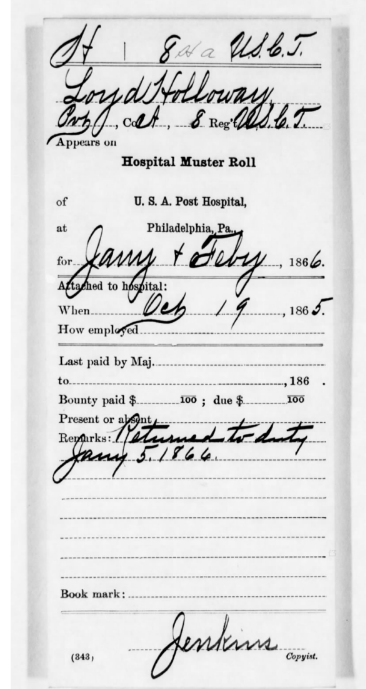 H | 8 U.S.C.T.
Loyd Holloway
Pvt, Co. A, 8 Reg't U.S.C.T.
Appears on
Hospital Muster Roll
of U. S. A. Post Hospital,
at Philadelphia, Pa.,
for Jany & Feby, 1866.
Attached to hospital:
When Oct 19, 1865.
How employed
Last paid by Maj.
to , 186 .
Bounty paid $ 100 ; due $ 100
Present or absent
Remarks: Returned to duty
Jany 5. 1866.
Book mark:
Jenkins
(343) Copyist.